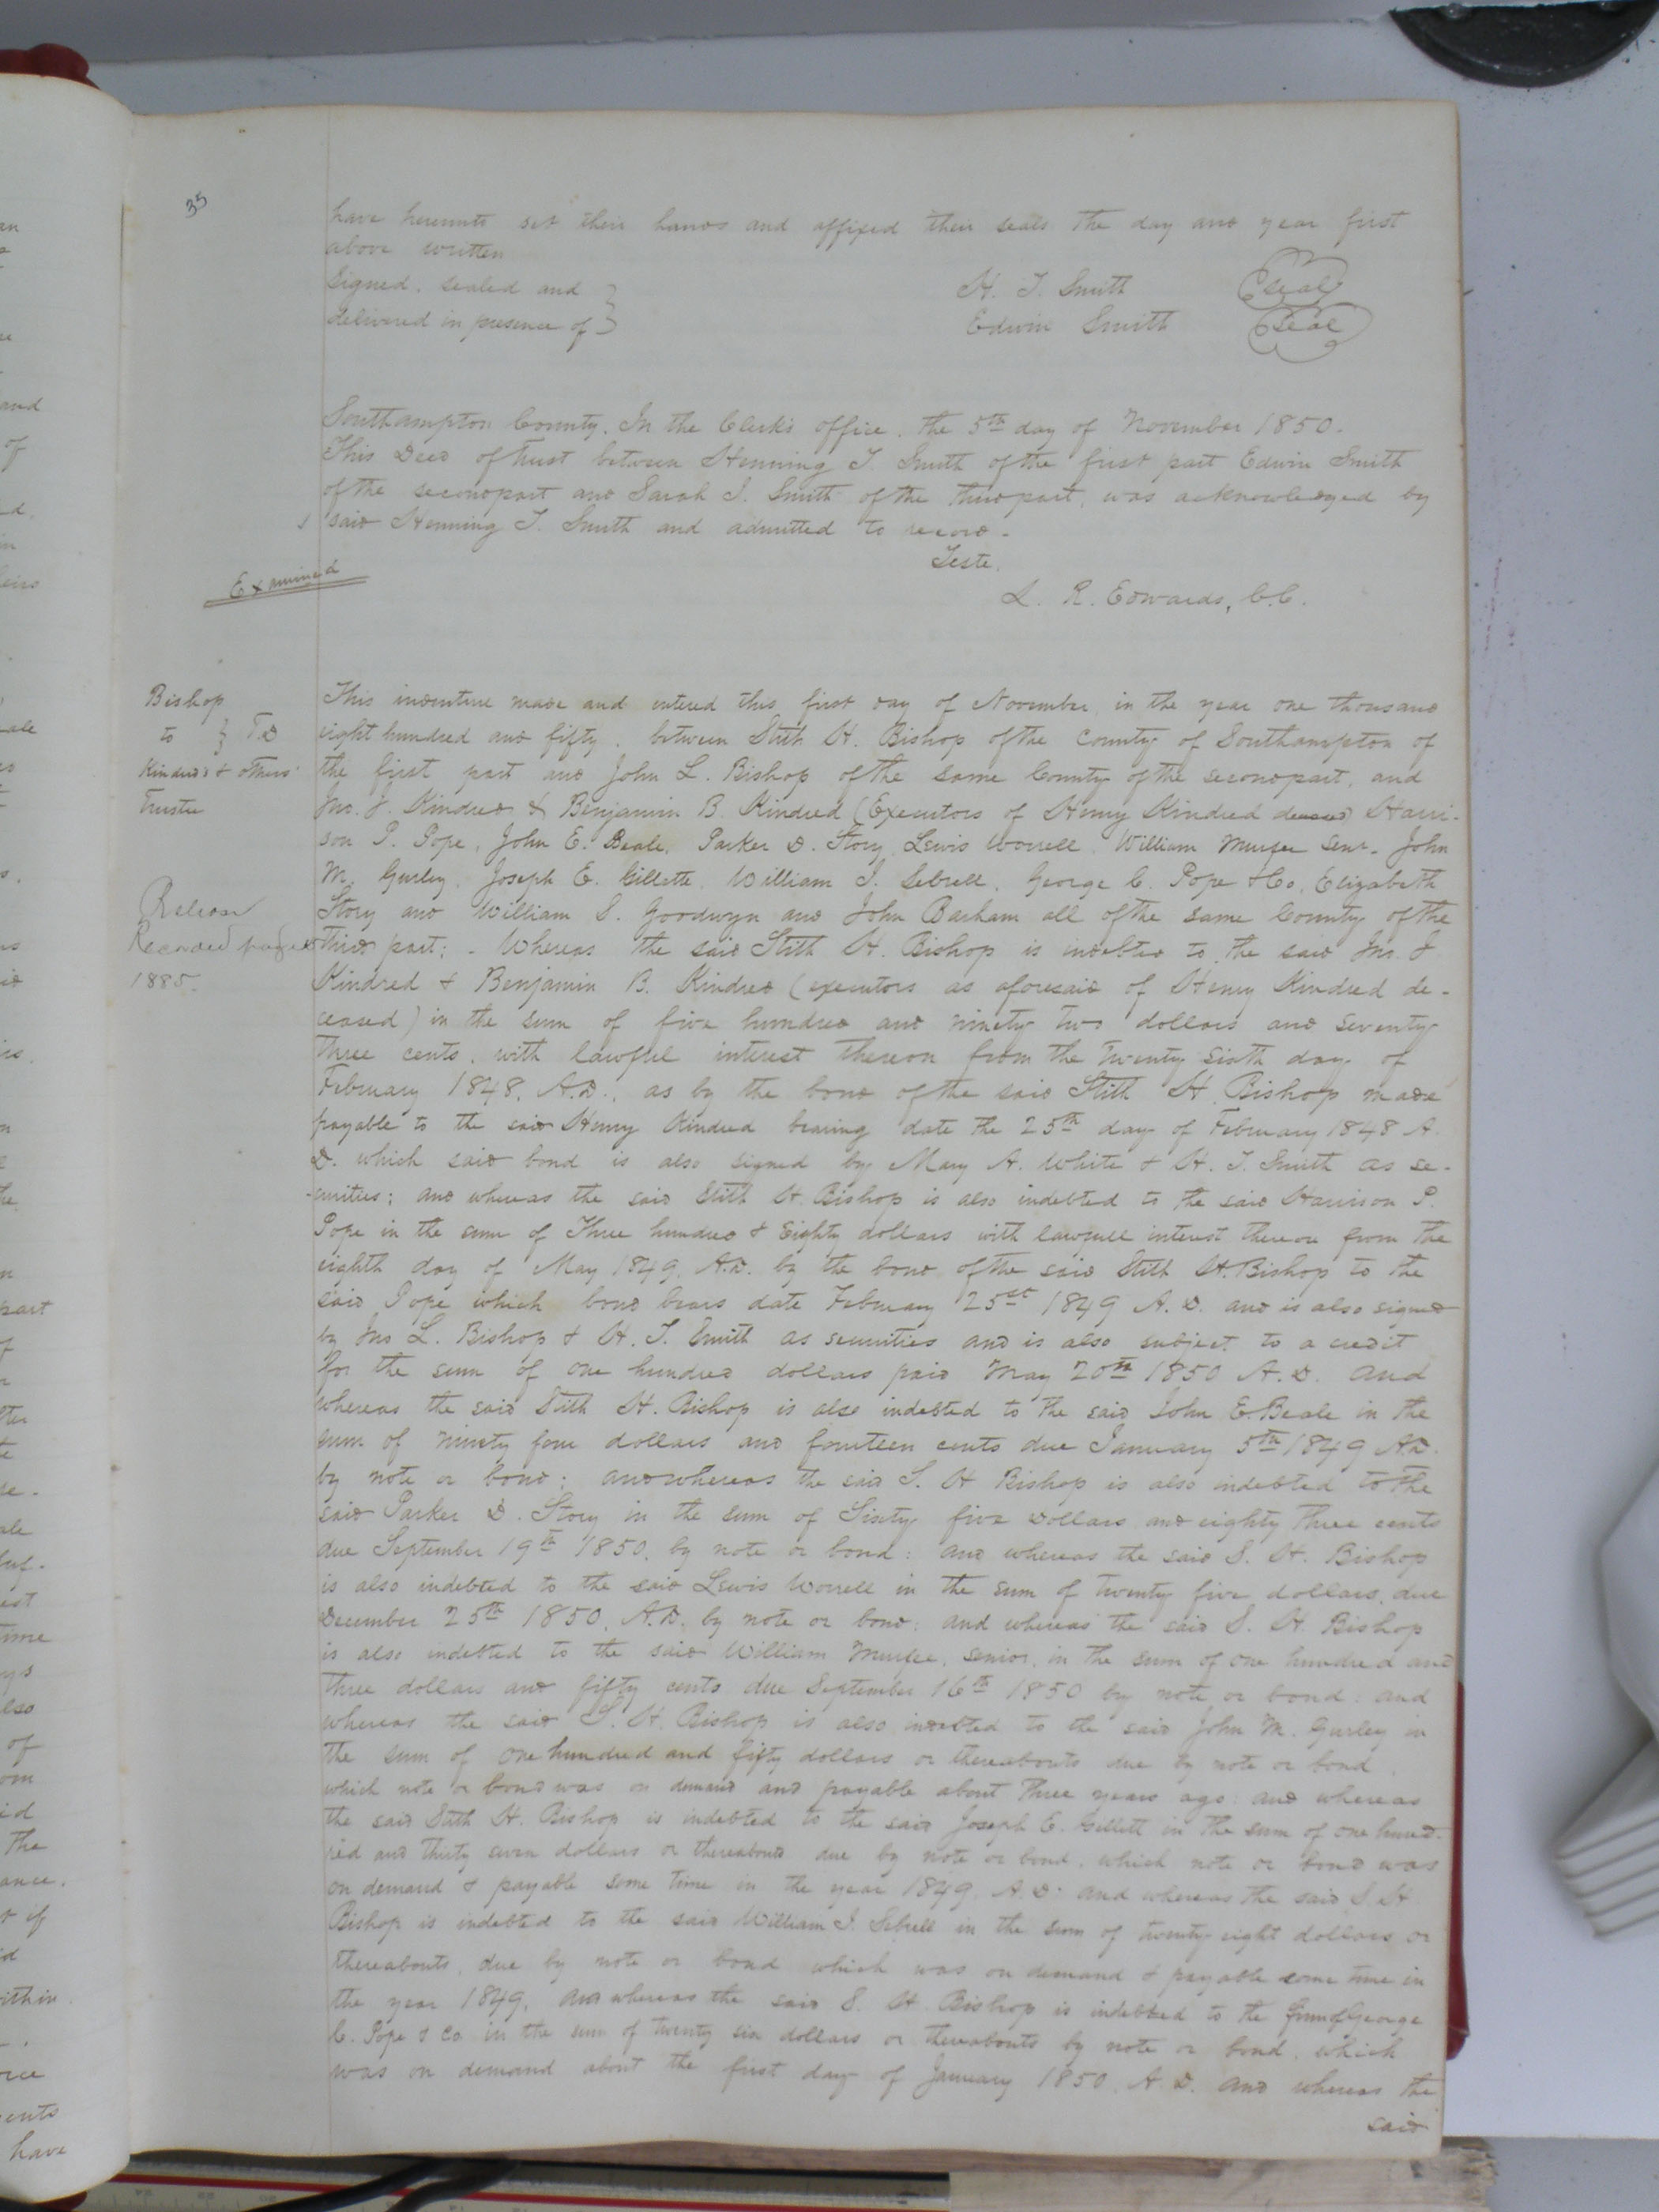 35
have hereunto set their hands and affixed their seals the day and year first
above written
Signed, sealed and } H. T. Smith (Seal)
delivered in presence of } Edwin Smith (Seal)
Southampton County. In the Clerk's office. the 5th day of November 1850.
This Deed of Trust between Henning T. Smith of the first part Edwin Smith
of the second part and Sarah J. Smith of the third part, was acknowledged by
said Henning T. Smith and admitted to record -
Teste.
Examined
L. R. Edwards, C.C.
Bishop
to } T.D
Kindred & others
Trustee
Release
Recorded page
1885.
This indenture made and entered this first day of November in the year one thousand
eight hundred and fifty. between Stith H. Bishop of the County of Southampton of
the first part and John L. Bishop of the same County of the second part, and
Jno. J. Kindred & Benjamin B. Kindred (Executors of Henry Kindred deceased) Harri-
son P. Pope, John E. Beale, Parker D. Story, Lewis Worrell, William Murfee Senr. John
M. Gurley, Joseph E. Gillette, William J. Sebrell, George C. Pope & Co, Elizabeth
Story and William S. Goodwyn and John Barham all of the same County of the
third part; - Whereas the said Stith H. Bishop is indebted to the said Jno. J.
Kindred & Benjamin B. Kindred (executors as aforesaid of Henry Kindred de-
ceased) in the sum of five hundred and ninety two dollars and seventy
three cents, with lawful interest thereon from the twenty sixth day of
February 1848, A.D., as by the bond of the said Stith H. Bishop made
payable to the said Henry Kindred bearing date the 25th day of February 1848 A.
D. which said bond is also signed by Mary A. White & H. T. Smith as se-
-curities; and whereas the said Stith H. Bishop is also indebted to the said Harrison P.
Pope in the sum of Three hundred & Eighty dollars with lawfull interest thereon from the
eighth day of May 1849, A.D. by the bond of the said Stith H. Bishop to the
said Pope which bond bears date February 25st 1849 A.D. and is also signed
by Jno L. Bishop & H. T. Smith as securities and is also subject to a credit
for the sum of one hundred dollars paid May 20th 1850 A.D. and
whereas the said Stith H. Bishop is also indebted to the said John E. Beale in the
sum of ninety four dollars and fourteen cents due January 5th 1849 A.D.
by note or bond; and whereas the said S. H Bishop is also indebted to the
said Parker D. Story in the sum of Sixty five Dollars and eighty three cents
due September 19th 1850, by note or bond: and whereas the said S. H. Bishop
is also indebted to the said Lewis Worrell in the sum of twenty five dollars, due
December 25th 1850, A.D. by note or bond: and whereas the said S. H. Bishop
is also indebted to the said William Murfee, senior, in the sum of one hundred and
three dollars and fifty cents due September 16th 1850 by note or bond: and
whereas the said S. H. Bishop is also indebted to the said John M. Gurley in
the sum of one hundred and fifty dollars or thereabouts due by note or bond,
which note or bond was on demand and payable about three years ago: and whereas
the said Stith H. Bishop is indebted to the said Joseph E. Gillett in the sum of one hund-
red and thirty seven dollars or thereabouts due by note or bond, which note or bond was
on demand & payable some time in the year 1849, A.D. and whereas the said S. H
Bishop is indebted to the said William J. Sebrell in the sum of twenty eight dollars or
thereabouts, due by note or bond which was on demand & payable some time in
the year 1849, and whereas the said S. H. Bishop is indebted to the firm of George
C. Pope & Co in the sum of twenty six dollars or thereabouts by note or bond, which
was on demand about the first day of January 1850, A.D. and whereas the
said